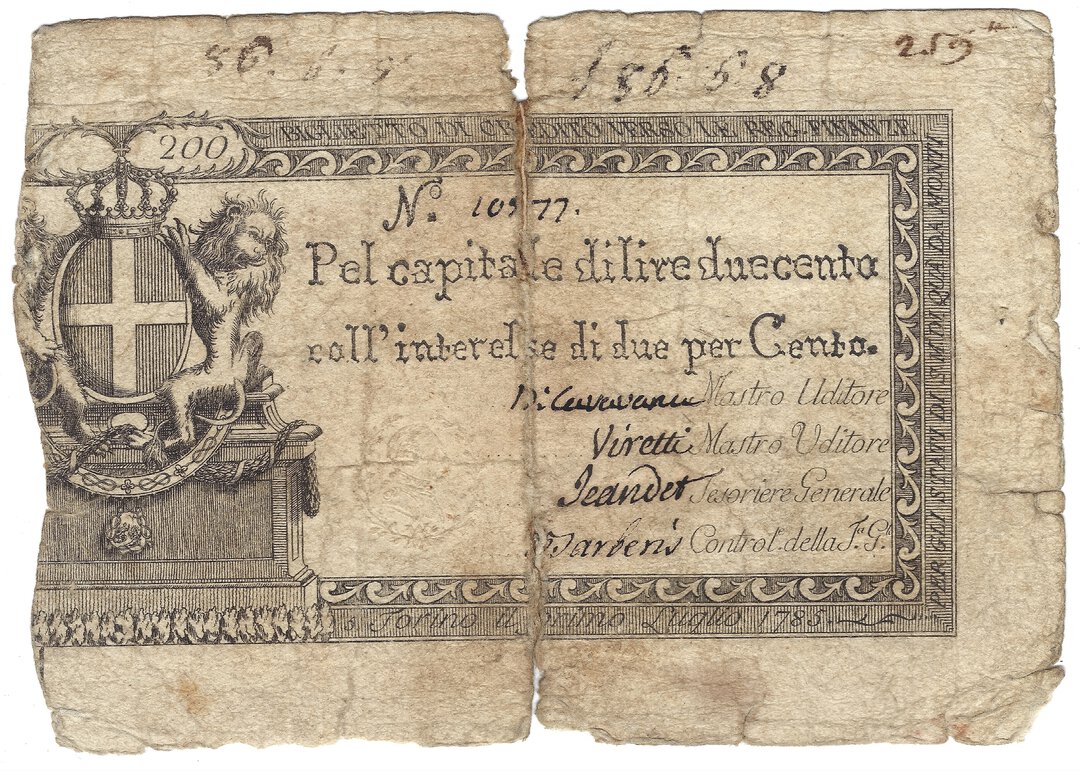 56. 6. 8
£ 56. 6. 8
259
200
BIGLIETTO DI CREDITO VERSO LE REG. FINANZE
N.º 10577.
Pel capitale di lire duecento
coll'interesse di due per Cento.
Mastro Uditore
Viretti Mastro Uditore
Jeandet Tesoriere Generale
Barberis Control.ᵉ della T.ª G.ˡᵉ
Torino il primo Luglio 1785.
PER GLI ISTITUTI